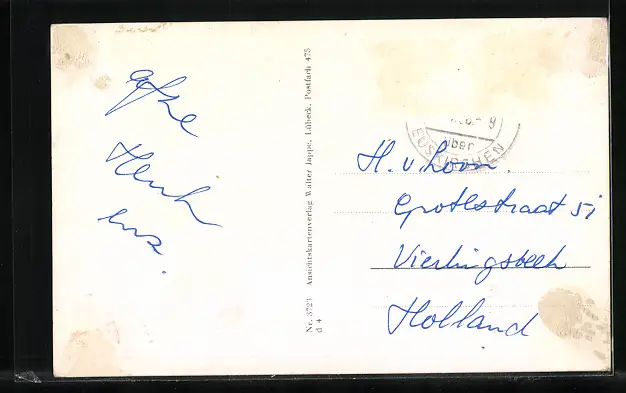 afz
Henk
enz.
Nr. 3723 Ansichtskartenverlag Walter Jappe, Lübeck, Postfach 475
d 4
über
EUSKIRCHEN
H. v. Loon.
Grotestraat 51
Vierlingsbeek
Holland